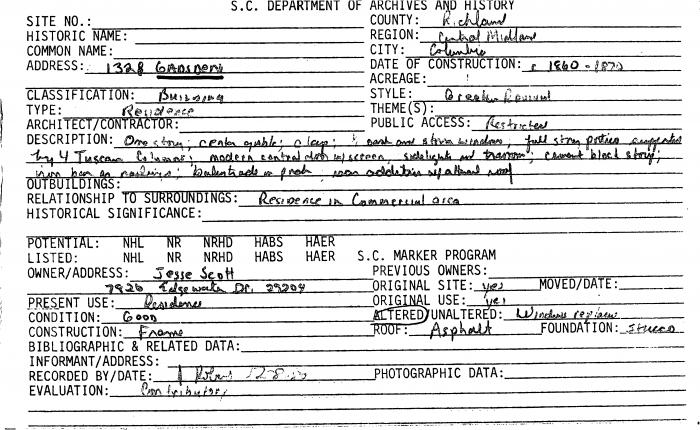 S.C. DEPARTMENT OF ARCHIVES AND HISTORY
SITE NO.: COUNTY: Richland
HISTORIC NAME: REGION: Central Midlands
COMMON NAME: CITY: Columbia
ADDRESS: 1328 GADSDEN DATE OF CONSTRUCTION: c 1860-1870
ACREAGE:
CLASSIFICATION: Building STYLE: Greek Revival
TYPE: Residence THEME(S):
ARCHITECT/CONTRACTOR: PUBLIC ACCESS: Restricted
DESCRIPTION: One story; center gable; clap; sash and storm windows; full story portico supported
by 4 Tuscan Columns; modern central door w/screen, sidelights and transom; cement block steps;
iron railings; balustrade on porch; rear addition w/ roof
OUTBUILDINGS:
RELATIONSHIP TO SURROUNDINGS: Residence in Commercial area
HISTORICAL SIGNIFICANCE:
POTENTIAL: NHL NR NRHD HABS HAER
LISTED: NHL NR NRHD HABS HAER S.C. MARKER PROGRAM
OWNER/ADDRESS: Jesse Scott PREVIOUS OWNERS:
7926 Edgewater Dr. 29204 ORIGINAL SITE: yes MOVED/DATE:
PRESENT USE: Residence ORIGINAL USE: yes
CONDITION: GOOD ALTERED/UNALTERED: Windows replaced
CONSTRUCTION: Frame ROOF: Asphalt FOUNDATION: Stucco
BIBLIOGRAPHIC & RELATED DATA:
INFORMANT/ADDRESS:
RECORDED BY/DATE: PHOTOGRAPHIC DATA:
EVALUATION: Contributory